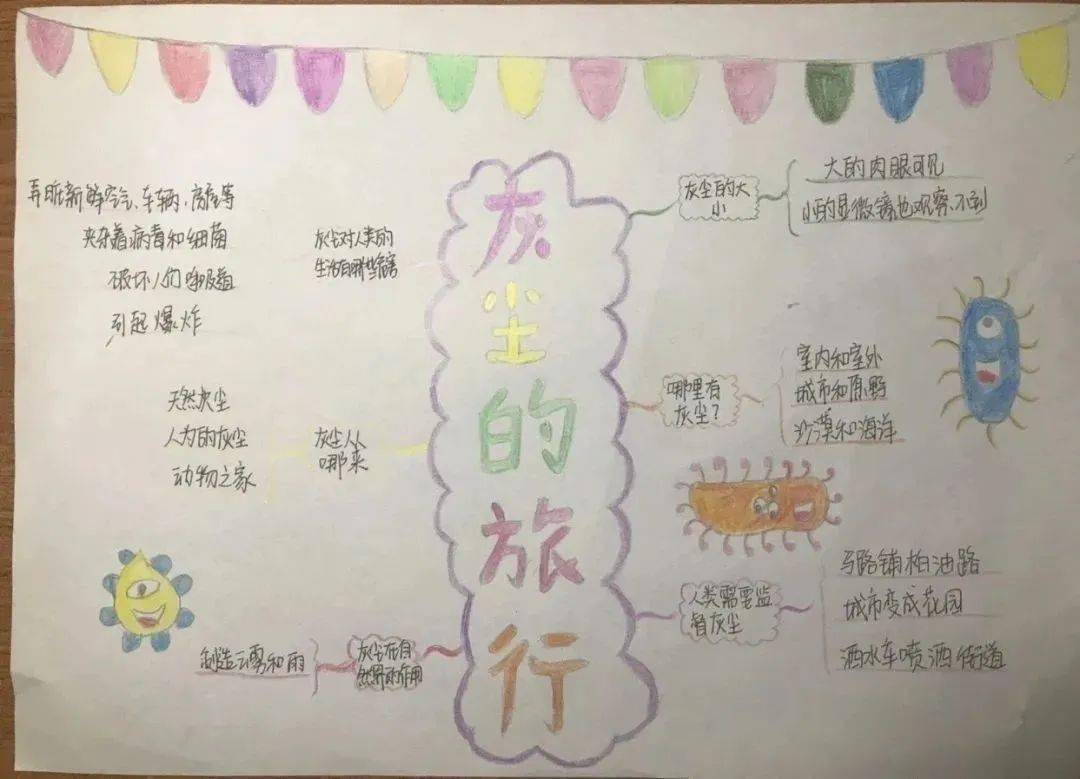 灰尘的旅行
灰尘的大
小
大的肉眼可见
小的显微镜也观察不到
哪里有
灰尘?
室内和室外
城市和原野
沙漠和海洋
人类需要监
督灰尘
马路铺柏油路
城市变成花园
洒水车喷洒街道
灰尘对人类的
生活有哪些危害
弄脏新鲜空气、车辆、房屋等
夹杂着病毒和细菌
破坏人们呼吸道
引起爆炸
灰尘从
哪来
天然灰尘
人为的灰尘
动物之家
灰尘在自
然界的作用
制造云雾和雨